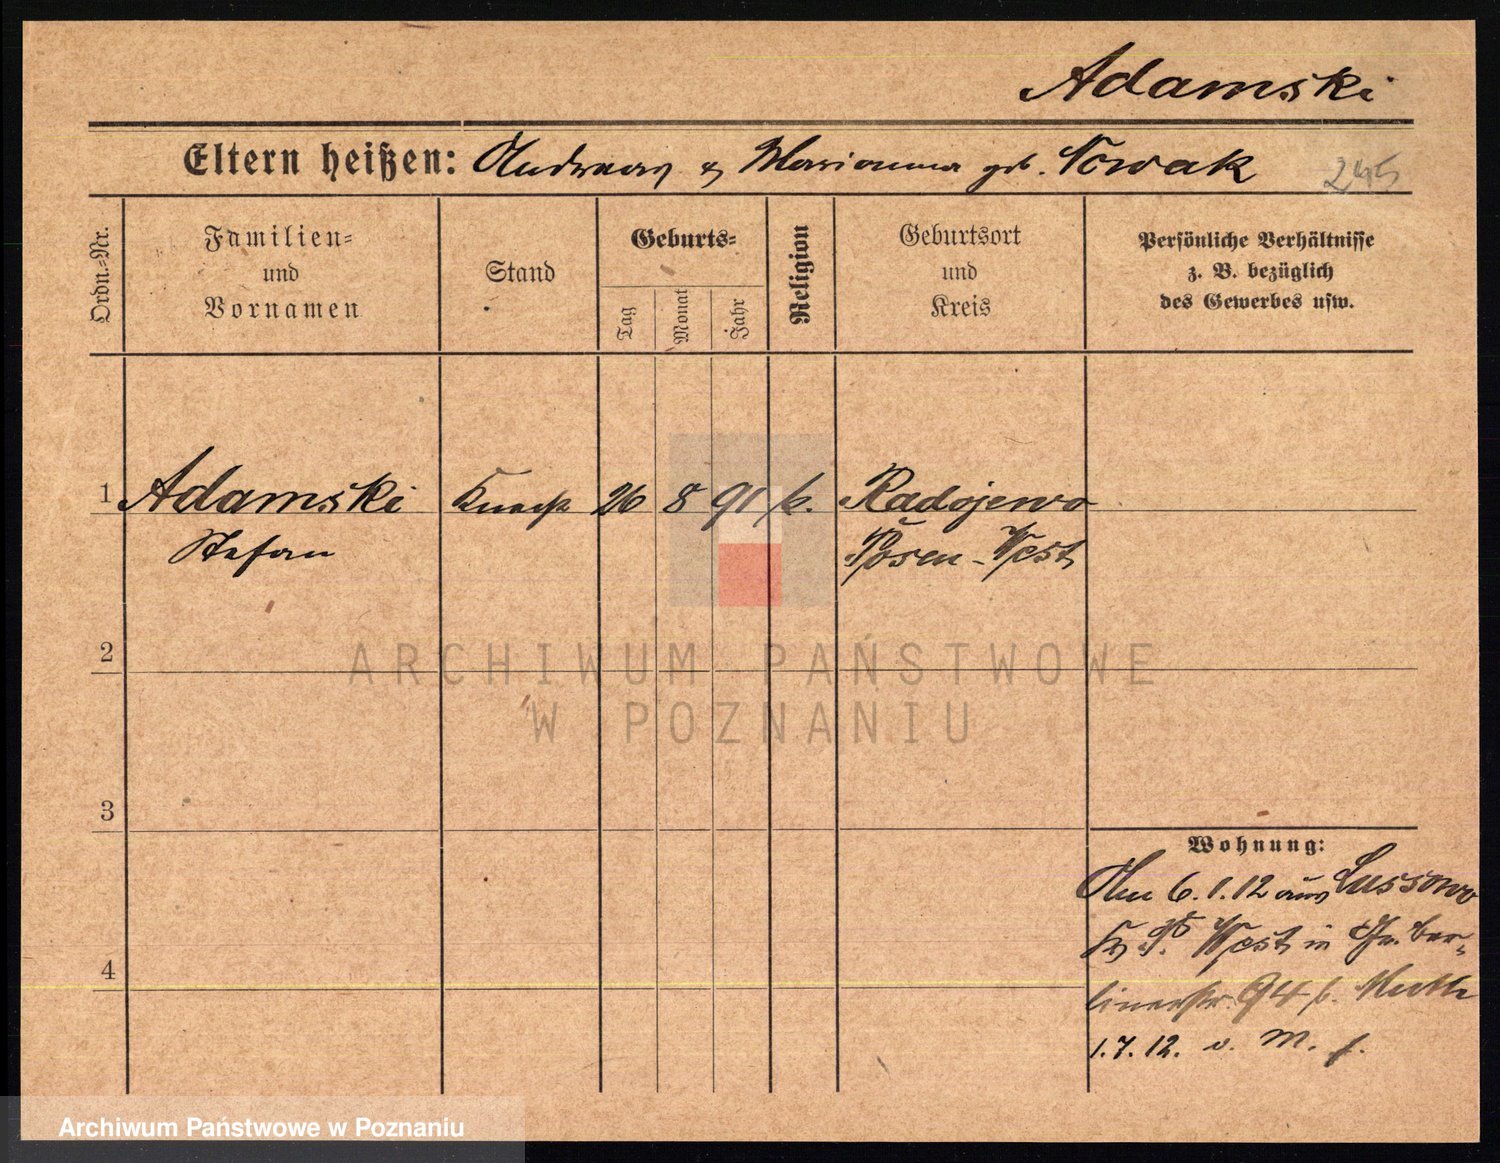 Adamski
Eltern heißen: Andreas & Marianna geb. Nowak
245
Ordn.-Nr.
Familien-
und
Vornamen
Stand
Geburts-
Tag
Monat
Jahr
Religion
Geburtsort
und
Kreis
Persönliche Verhältnisse
z. B. bezüglich
des Gewerbes usw.
1 Adamski Knecht 26 8 91 k. Radojewo
Stefan Posen-West
2
ARCHIWUM PAŃSTWOWE
W POZNANIU
3
Wohnung:
6.1.12 aus Lussowo
P. West in Gr. Ber-
4
linerstr. 94 b.
1.7.12. v. M.
Archiwum Państwowe w Poznaniu